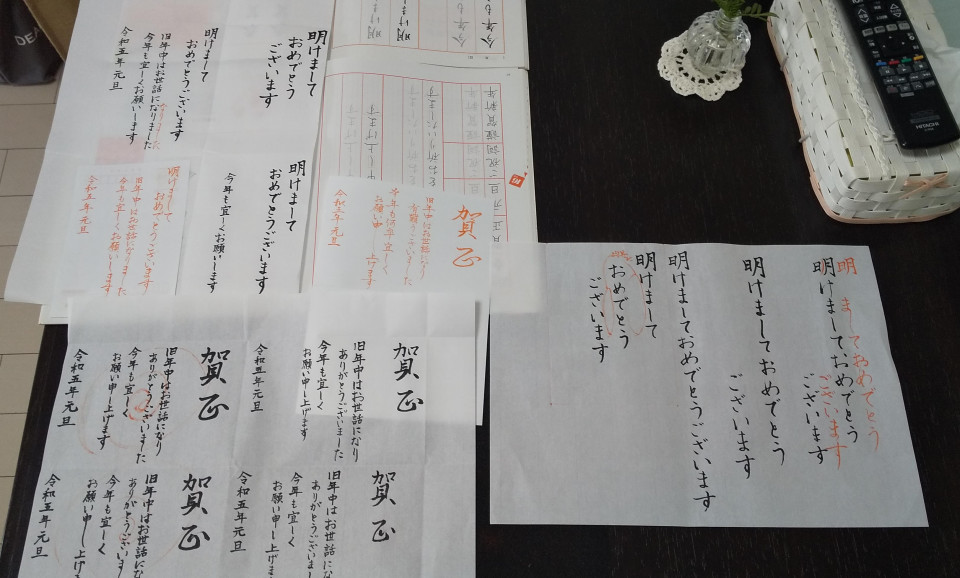 今年も
明け
まけ
明けまして
おめでとう
ございます
明けまして
おめでとうございます
旧年中はお世話になりました
今年も宜しくお願いします
令和五年元旦
明けまして
おめでとうございます
今年も宜しくお願いします
明けまして
おめでとうございます
旧年中はお世話になりました
今年も宜しくお願いします
令和五年元旦
賀正
旧年中はお世話になり
有難うございました
今年も宜しく
お願い申し上げます
令和三年元旦
賀正
旧年中はお世話になり
ありがとうございました
今年も宜しく
お願い申し上げます
令和五年元旦
賀正
旧年中はお世話になり
ありがとうございました
今年も宜しく
お願い申し上げます
令和五年元旦
賀正
旧年中はお世話に
ありがとうございまし
今年も宜しく
お願い申し上げま
令和五年元旦
賀正
旧年中はお世話にな
ありがとうございま
今年も宜しく
お願い申し上げ
令和五年元旦
明 ましておめでとう
ございます
明けましておめでとう
ございます
明けましておめでとう
ございます
明けましておめでとうございます
明けまして
おめでとう
ございます